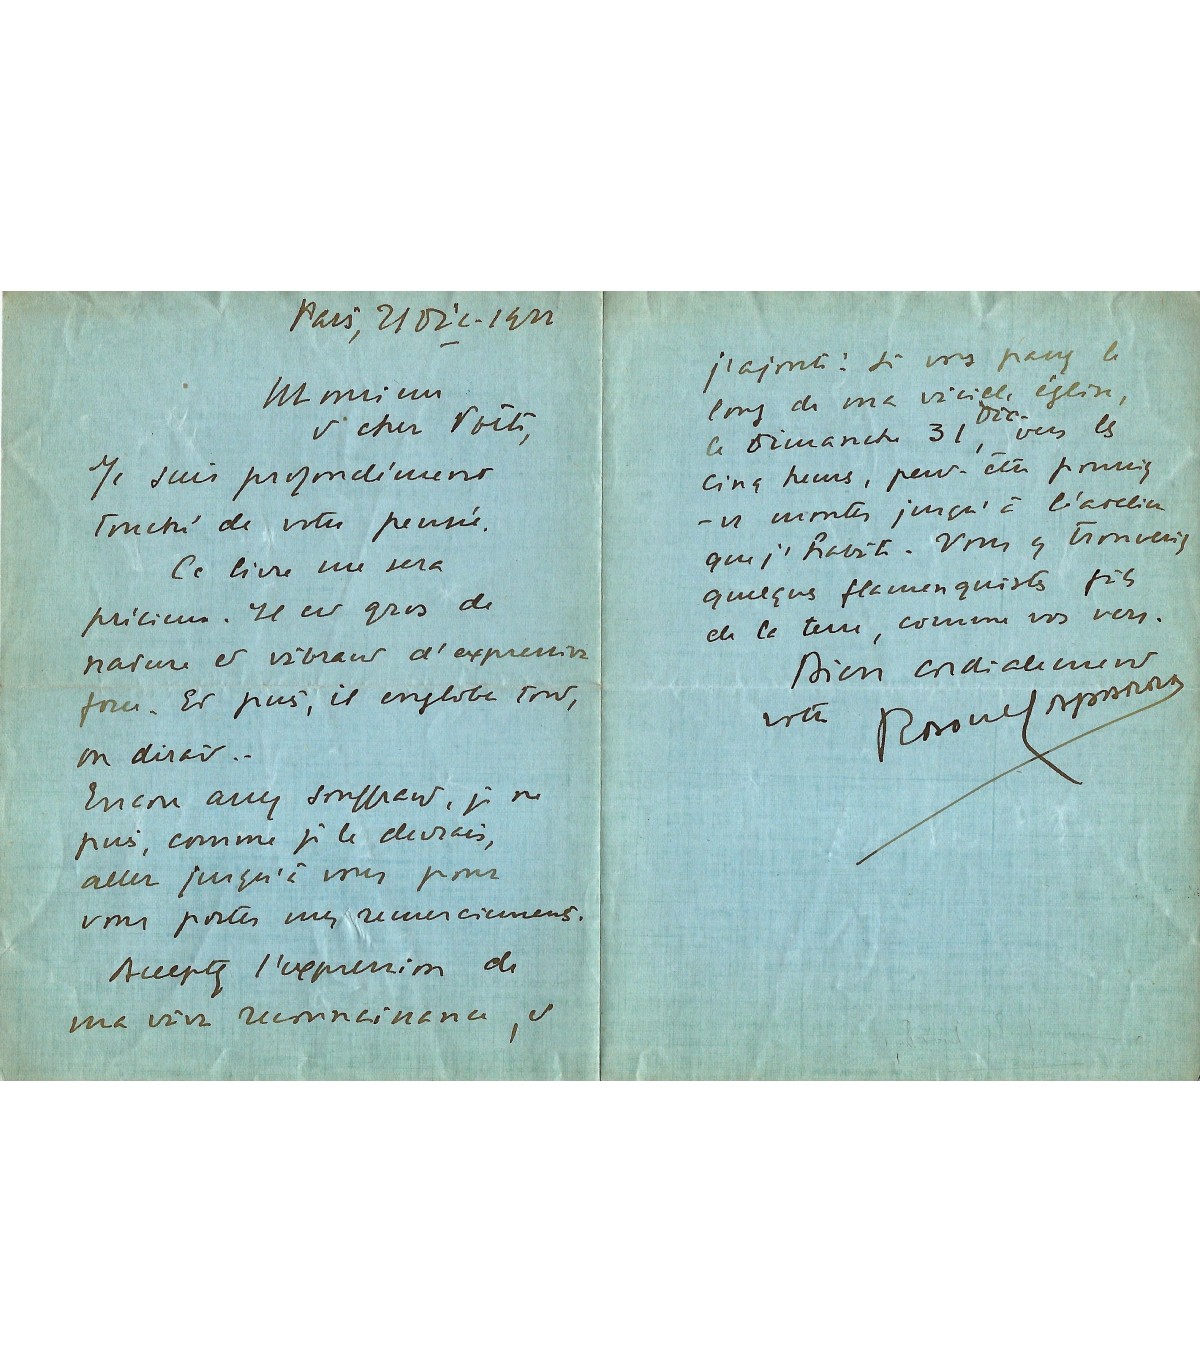 Paris, 21 Déc. 1922
Monsieur
et cher Poète,
Je suis profondément
touché de votre pensée.
Ce livre me sera
précieux. Il est gros de
nature et vibrant d'expressive
force. Et puis, il englobe tout,
on dirait..
Encore assez souffrant, je ne
puis, comme je le devrais,
aller jusqu'à vous pour
vous porter mes remerciements.
Acceptez l'expression de
ma vive reconnaissance, et
j'ajoute: si vous passez le
long de ma vieille église,
le Dimanche 31 Déc., vers les
cinq heures, peut-être pourriez
-vs monter jusqu'à l'atelier
que j'habite. Vous y trouveriez
quelques flamenquistes fils
de la terre, comme vos vers.
Bien cordialement
votre Raoul Laparra